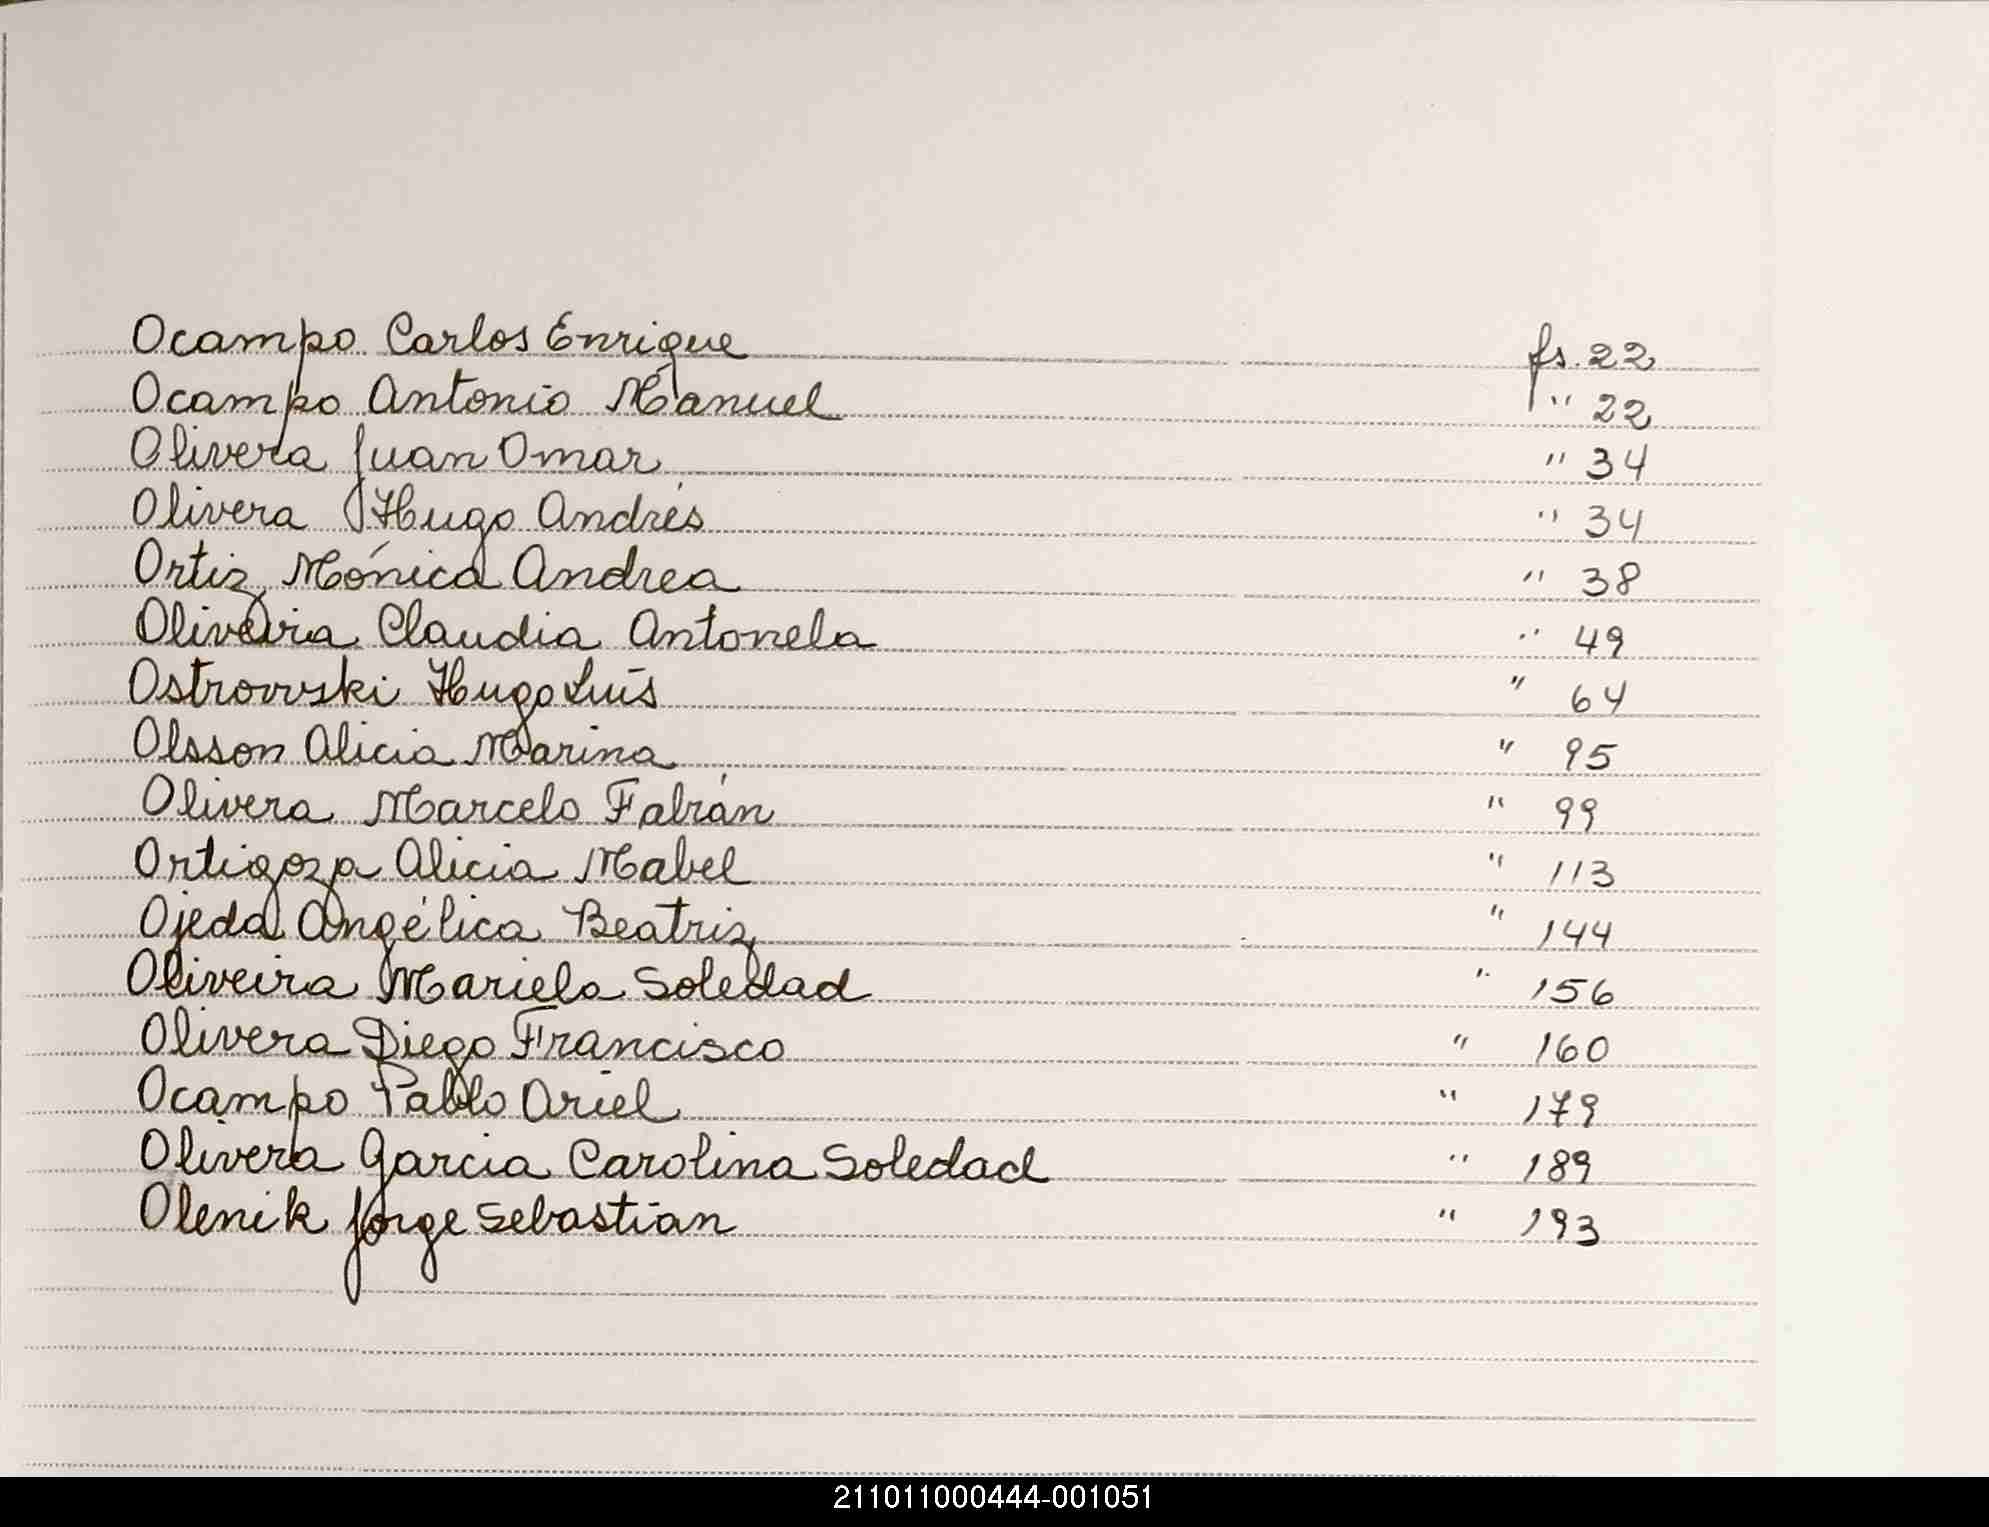 Ocampo Carlos Enrique fs. 22
Ocampo Antonio Manuel " 22
Olivera Juan Omar " 34
Olivera Hugo Andrés " 34
Ortiz Mónica Andrea " 38
Oliveira Claudia Antonela " 49
Ostrowski Hugo Luis " 64
Olsson Alicia Marina " 95
Olivera Marcelo Fabián " 99
Ortigoza Alicia Mabel " 113
Ojeda Angélica Beatriz " 144
Oliveira Mariela Soledad " 156
Olivera Diego Francisco " 160
Ocampo Pablo Ariel " 179
Olivera Garcia Carolina Soledad " 189
Olenik Jorge Sebastian " 193
211011000444-001051